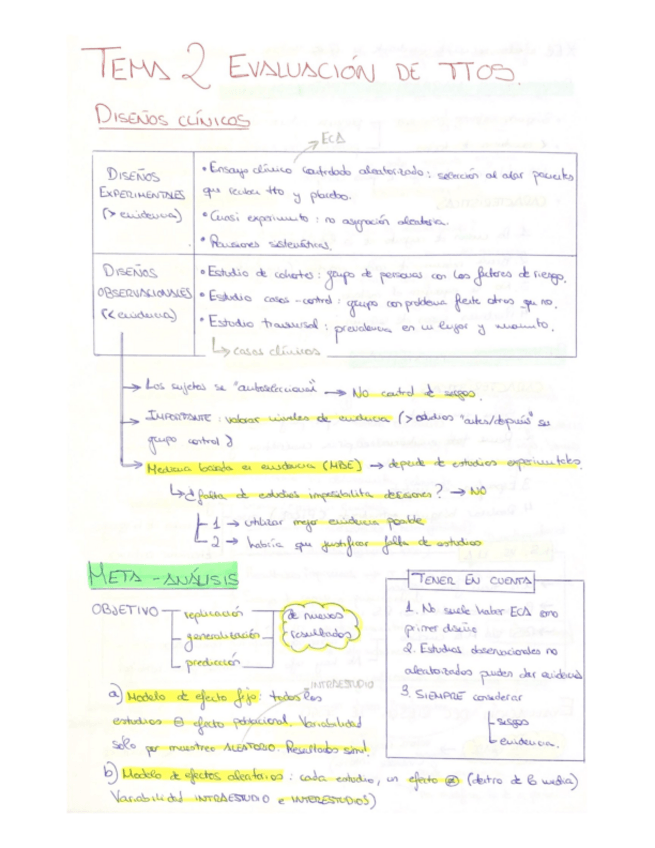 TEMA 2 EVALUACIÓN DE TTOS.
DISEÑOS CLÍNICOS
ECA
DISEÑOS
EXPERIMENTALES
(> evidencia)
• Ensayo clínico controlado aleatorizado: selección al azar pacientes
que reciben tto y placebo.
• Cuasi experimento: no asignación aleatoria.
• Revisiones sistemáticas.
DISEÑOS
OBSERVACIONALES
(< evidencia)
• Estudio de cohortes: grupo de personas con los factores de riesgo.
• Estudio casos-control: grupo con problema frente otros que no.
• Estudio transversal: prevalencia en un lugar y momento.
↳ casos clínicos
→ Los sujetos se "autoseleccionan" → No control de sesgos.
→ IMPORTANTE: valorar niveles de evidencia (> estudios "antes/después" su
grupo control)
→ Medicina basada en evidencia (MBE) → depende de estudios experimentales.
↳ ¿falta de estudios imposibilita decisiones? → NO
1 → utilizar mejor evidencia posible
2 → habría que justificar falta de estudios
META-ANÁLISIS
OBJETIVO
replicación
generalización
predicción
de nuevos
resultados
TENER EN CUENTA
1. No suele haber ECA como
primer diseño
2. Estudios observacionales no
aleatorizados pueden dar evidencia
3. SIEMPRE considerar
sesgos
evidencia.
INTRAESTUDIO
a) Modelo de efecto fijo: todos los
estudios = efecto poblacional. Variabilidad
sólo por muestreo ALEATORIO. Resultados simil.
b) Modelo de efectos aleatorios: cada estudio, un efecto ≠ (dentro de la media)
Variabilidad INTRAESTUDIO e INTERESTUDIOS)